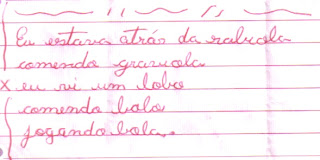 Eu estava atrás da rabiola
comendo graviola
x eu vi um lobo
comendo bolo
jogando bola.